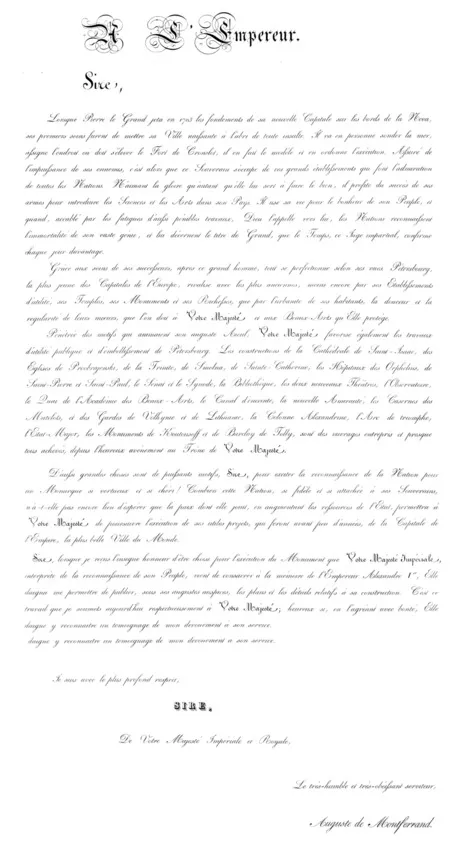 A L'Empereur.
Sire,
Lorsque Pierre le Grand jeta en 1703 les fondements de sa nouvelle Capitale sur les bords de la Neva,
ses premiers soins furent de mettre sa Ville naissante à l'abri de toute insulte. Il va en personne sonder la mer,
assigne l'endroit où doit s'élever le Fort de Cronslot, il en fait le modèle et en ordonne l'exécution. Assuré de
l'impuissance de ses ennemis, c'est alors que ce Souverain s'occupe de ces grands établissements qui font l'admiration
de toutes les Nations. N'aimant la gloire qu'autant qu'elle lui sert à faire le bien, il profite du succès de ses
armes pour introduire les Sciences et les Arts dans son Pays. Il use sa vie pour le bonheur de son Peuple, et
quand, accablé par les fatigues d'aussi pénibles travaux, Dieu l'appelle vers lui, les Nations reconnaissent
l'immortalité de son vaste génie, et lui décernent le titre de Grand, que le Temps, ce Juge impartial, confirme
chaque jour davantage.
Grâce aux soins de ses successeurs, après ce grand homme, tout se perfectionne selon ses vues. Pétersbourg,
la plus jeune des Capitales de l'Europe, rivalise avec les plus anciennes, moins encore par ses Etablissements
d'utilité, ses Temples, ses Monuments et ses Richesses, que par l'urbanité de ses habitants, la douceur et la
régularité de leurs mœurs, que l'on doit à Votre Majesté et aux Beaux Arts qu'Elle protège.
Pénétrée des motifs qui animaient son auguste Aïeul, Votre Majesté favorise également les travaux
d'utilité publique et d'embellissement de Pétersbourg. Les constructions de la Cathédrale de Saint-Isaac, des
Eglises de Preobragensk, de la Trinité, de Smolna, de Sainte-Catherine, les Hôpitaux des Orphelins, de
Saint-Pierre et Saint-Paul, le Sénat et le Synode, la Bibliothèque, les deux nouveaux Théâtres, l'Observatoire,
le Quai de l'Académie des Beaux-Arts, le Canal d'enceinte, la nouvelle Amirauté, les Casernes des
Matelots, et des Gardes de Volhynie et de Lithuanie, la Colonne Alexandrine, l'Arc de triomphe,
l'Etat-Major, les Monuments de Koutousoff et de Barclay de Tolly, sont des ouvrages entrepris et presque
tous achevés, depuis l'heureux avènement au Trône de Votre Majesté.
D'aussi grandes choses sont de puissants motifs, Sire, pour exciter la reconnaissance de la Nation pour
un Monarque si vertueux et si chéri! Combien cette Nation, si fidèle et si attachée à ses Souverains,
n'a-t-elle pas encore lieu d'espérer que la paix dont elle jouit, en augmentant les ressources de l'Etat, permettra à
Votre Majesté de poursuivre l'exécution de ses utiles projets, qui feront avant peu d'années, de la Capitale de
l'Empire, la plus belle Ville du Monde.
Sire, lorsque je reçus l'insigne honneur d'être choisi pour l'exécution du Monument que Votre Majesté Impériale,
interprète de la reconnaissance de son Peuple, vient de consacrer à la mémoire de l'Empereur Alexandre 1er, Elle
daigna me permettre de publier, sous ses augustes auspices, les plans et les détails relatifs à sa construction. C'est ce
travail que je soumets aujourd'hui respectueusement à Votre Majesté; heureux si, en l'agréant avec bonté, Elle
daigne y reconnaitre un témoignage de mon dévouement à son service.
daigne y reconnaitre un témoignage de mon dévouement à son service.
Je suis avec le plus profond respect,
SIRE,
De Votre Majesté Impériale et Royale,
Le très-humble et très-obéissant serviteur,
Auguste de Montferrand.